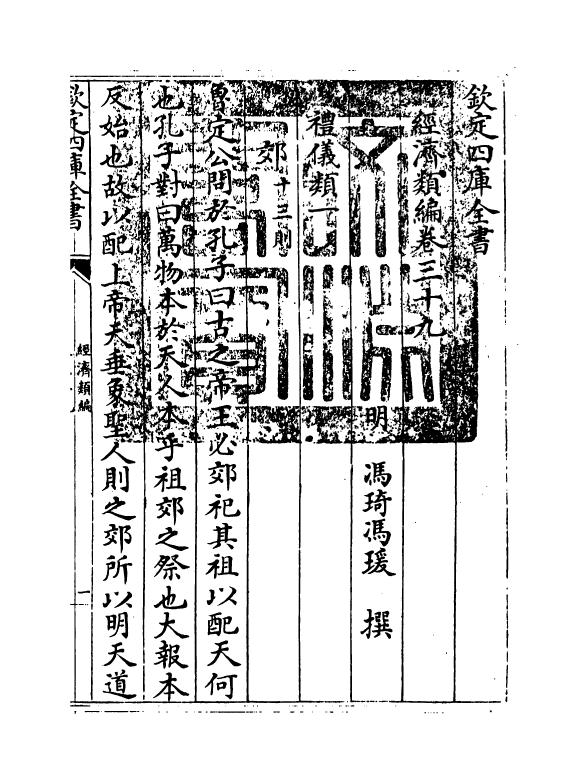 欽定四庫全書
經濟類編卷三十九
明 馮琦馮瑗 撰
禮儀類一
郊十三則
魯定公問於孔子曰古之帝王必郊祀其祖以配天何
也孔子對曰萬物本於天人本乎祖郊之祭也大報本
反始也故以配上帝天垂象聖人則之郊所以明天道
欽定四庫全書
經濟類編
一